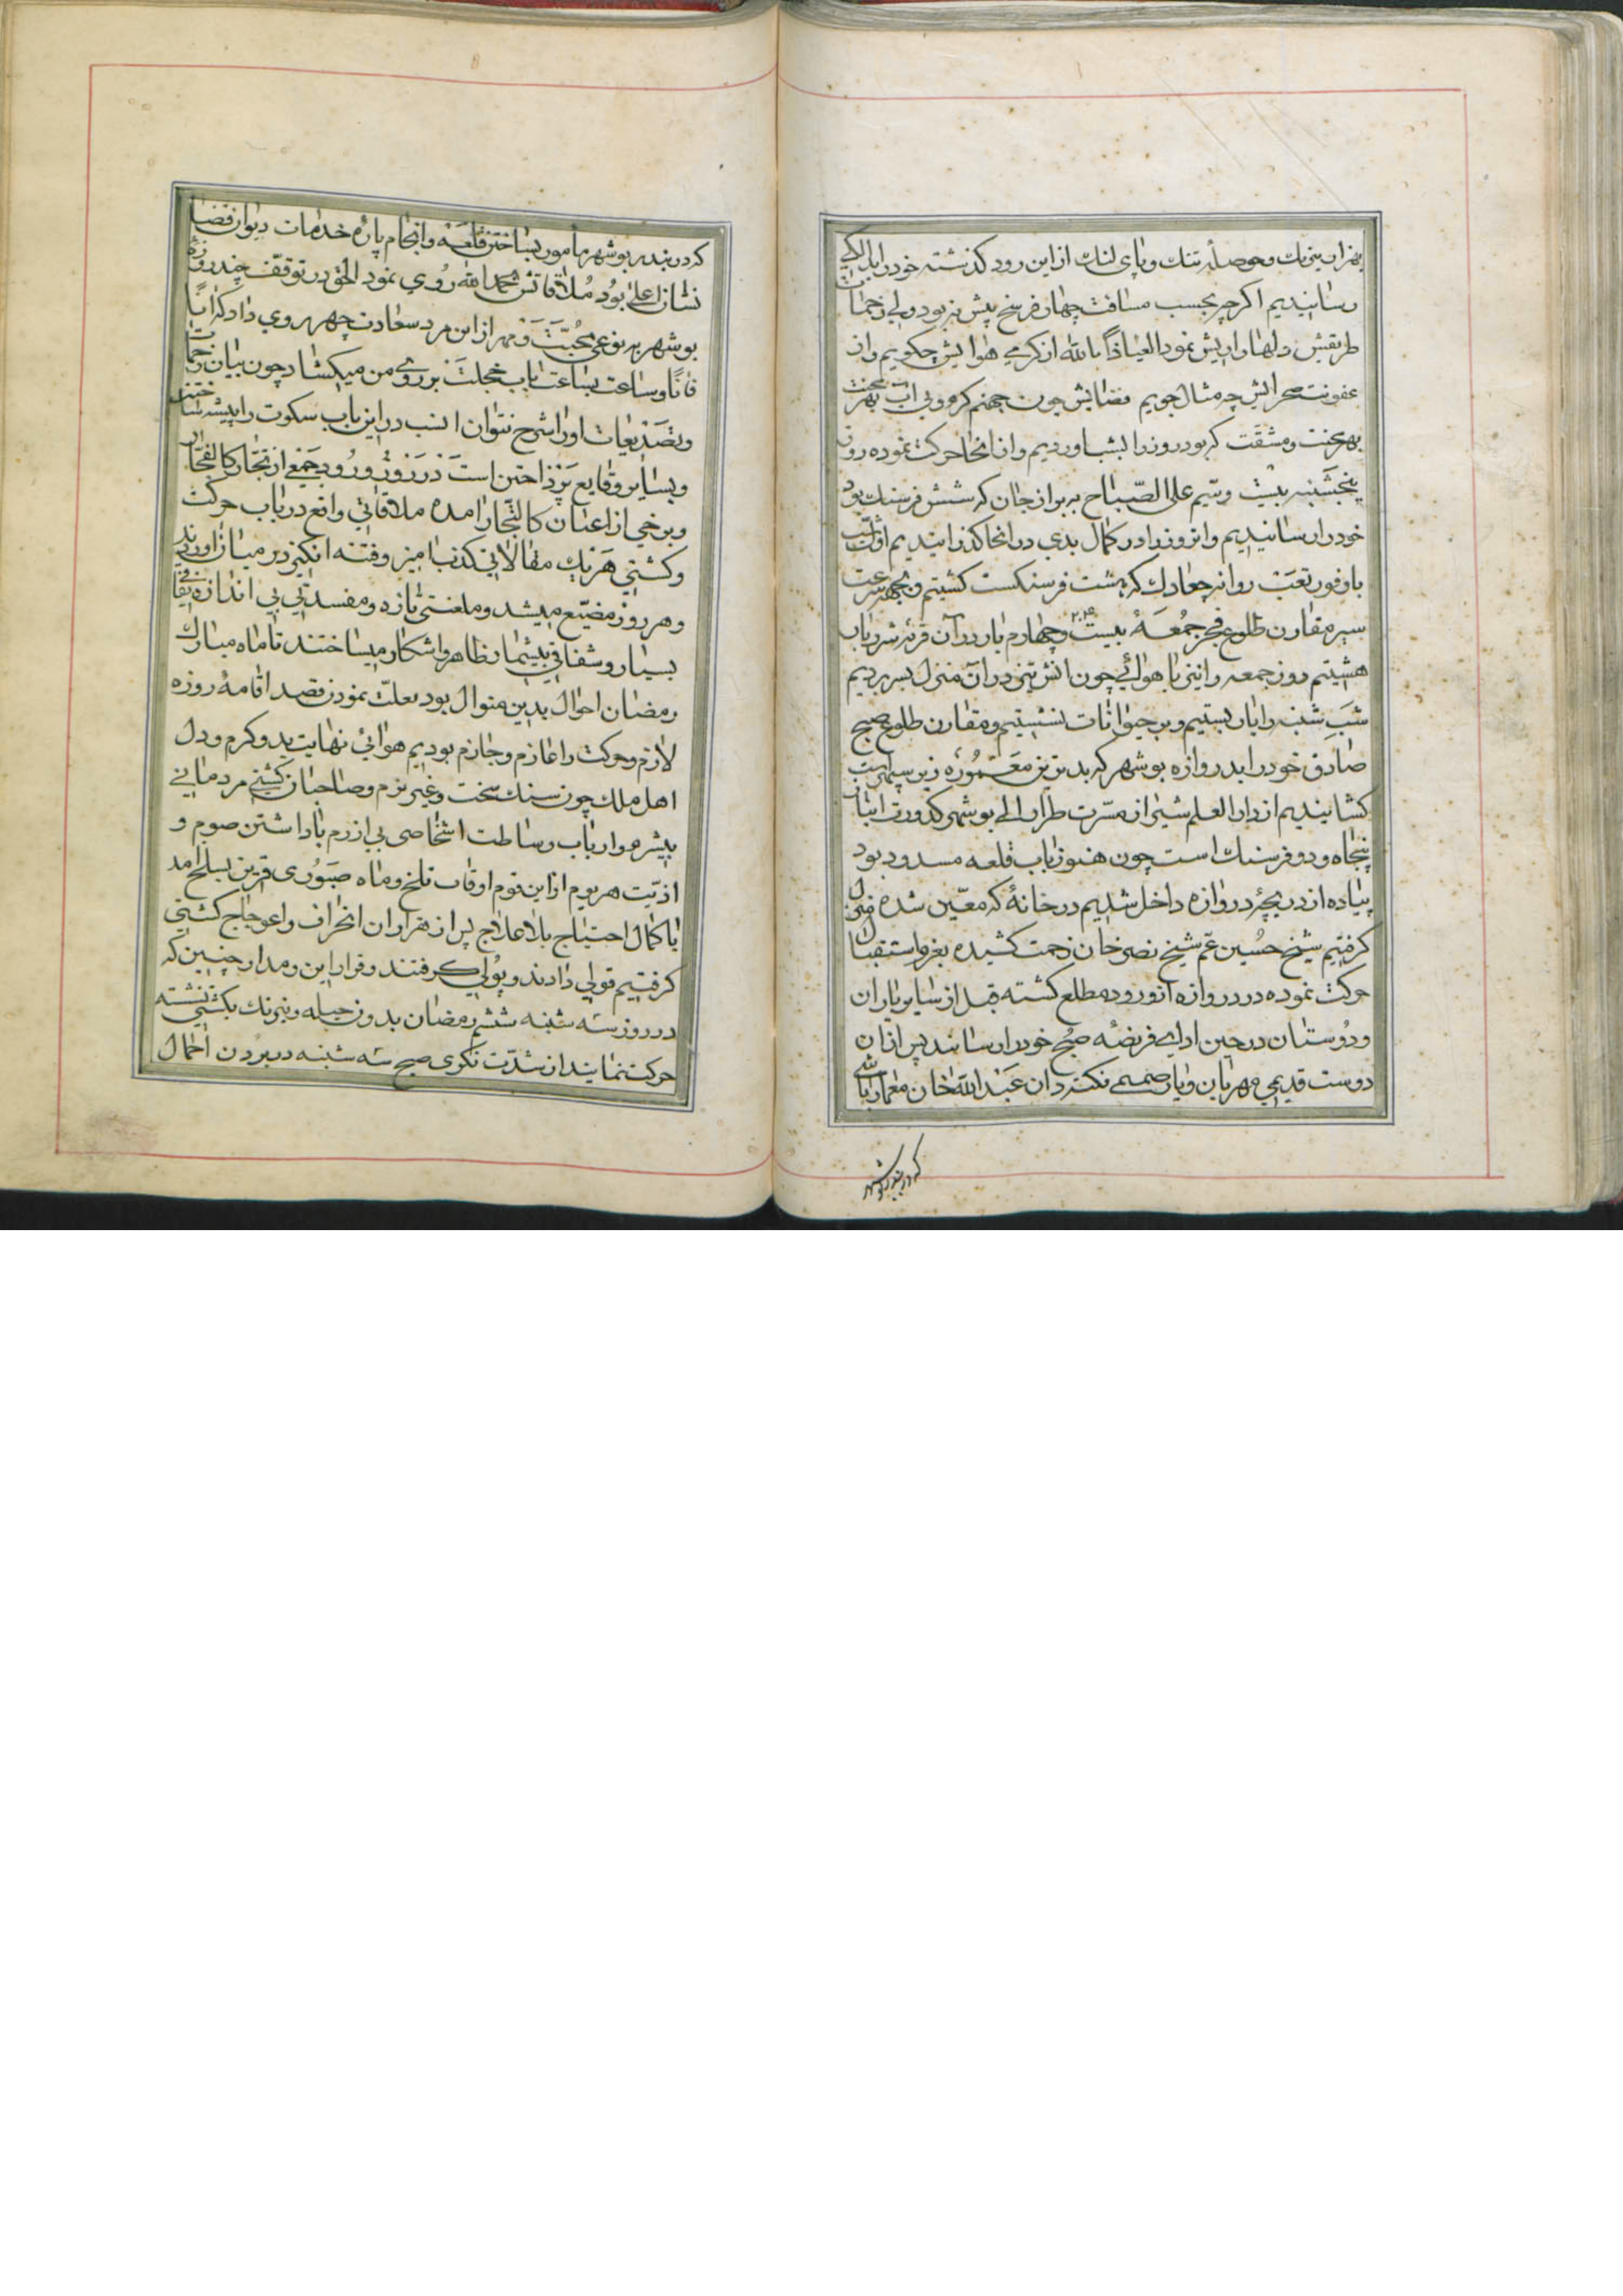 بهزار نیرنك وحوصلهٔ تنك وپای لنك ازاین رود کذشته خودرا بدالکی
رسانیدیم اکرچه بحسب مسافت چهار فرسخ بیش نبود ولی زحمات
طریقش دلها را ریش نمود العیاذا بالله ازکرمی هوایش چکویم واز
عفونت صحرایش چه مثال جویم فضایش چون جهنم کرم وبی اب بهر محنت
بهر محنت ومشقت که بود روز را بشب اوردیم واز انجا حرکت نموده روز
پنجشنبه بیست وسیم علی الصباح به برازجان که شش فرسنك بود
خودرا رسانیدیم وانروز را در کمال بدی در انجا کذرانیدیم اول شب
با وفور تعب روانه چغادك که هشت فرسنکست کشتیم و بجهة سرعت
سیر مقارن طلوع فجر جمعهٔ بیست وچهارم بار در آن قریه شرر بار
۲۴
هشتیم روز جمعه را نیز با هوائی چون اتش تیز در آن منزل بسر بردیم
شب شنبه را بار بستیم وبر حیوانات نشستیم ومقارن طلوع صبح
صادق خودرا بدروازه بوشهر که بدترین معمورهٔ زیر سپهر است
کشانیدیم از دار العلم شیراز مسرت طراز الی بوشهر کدورت انباز
پنجاه ودو فرسنك است چون هنوز باب قلعه مسدود بود
پیاده از دریچهٔ دروازه داخل شدیم در خانهٔ که معین شده منزل
کرفتیم شیخ حسین عم شیخ نصر خان زحمت کشیده بعزم استقبال
حرکت نموده در دروازه از ورود مطلع کشته قبل از سایر یاران
ودوستان در حین ادای فریضه صبح خودرا رسانید پس از ان
دوست قدیمی مهربان ویار صمیمی نکته دان عبدالله خان معمار باشی
که در بندر بوشهر
که در بندر بوشهر مأمور بساختن قلعه وانجام پارهٔ خدمات دیوان قضا
نشان اعلی بود ملاقاتش بحمدالله روی نمود الحق در توقف چند روزهٔ
بوشهر به نوعی محبت ومهر از این مرد سعادت چهر روی داد که آنا
فانا وساعت بساعت باب خجلت بر روی من میکشاد چون بیان زحمات
وتصدیعات اورا شرح نتوان انسب در این باب سکوت را پیشه ساختن
وبسایر وقایع پرداختن است در روز ورود جمعی از تجار کالفجار
وبرخی از اعنان کالتجار امده ملاقاتی واقع در باب حرکت
وکشتی هر یك مقالاتی کذب امیز وفتنه انکیز در میان اوردند
وهر روز مضیع میشد وملعنتی تازه ومفسدتی بی اندازه نفاقی
بسیار وشقاقی بیشمار ظاهر واشکار میساختند تا ماه مبارك
رمضان احوال بدین منوال بود بعلت نمودن قصد اقامهٔ روزه
لازم وحرکت را عازم وجازم بودیم هوائی نهایت بد وکرم ودل
اهل ملك چون سنك سخت وغیر نرم وصاحبان کشتی مردمانی
بیشرم وارباب وساطت اشخاصی بی ازرم باداشتن صوم و
اذیت هر یوم از این قوم اوقات تلخ وماه صبوری قرین بسلخ امد
با کمال احتیاج بلاعلاج پس از هزاران انحراف واعوجاج کشتی
کرفتیم قولی دادند وپولی کرفتند وقرار این ومدار چنین که
در روز سه شنبه ششم رمضان بدون حیله ونیرنك بکشتی نشسته
حرکت نمایند از شدت نکری صبح سه شنبه در بردن احمال